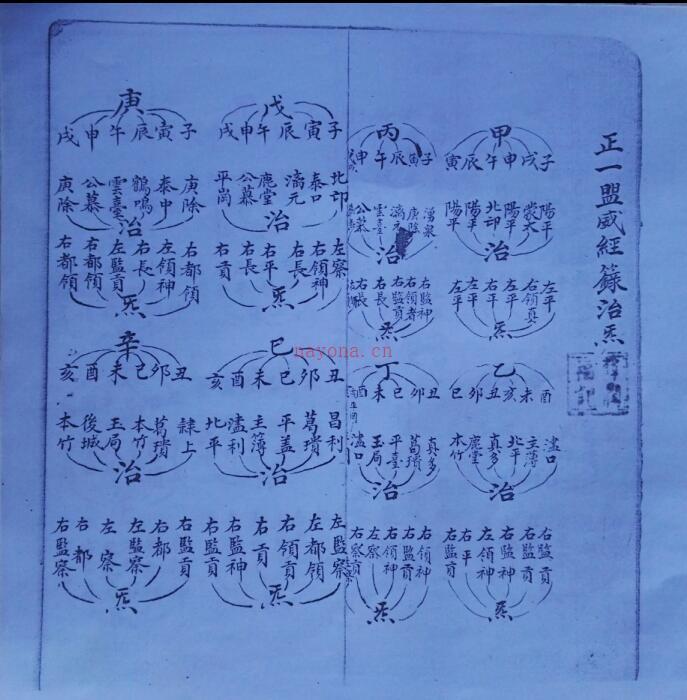 正一盟威經籙治炁
甲
子戌申午辰寅
陽平 蒙大 陽平 北邙 陽平 陽平
治
左平 右領真 左平 右平 左平 左平
炁
乙
酉未亥丑卯巳
濜口 主薄 北平 真多 鹿堂 本竹
治
右監貢 右監神 左領神 右平 右監貢
炁
丙
子寅辰午申
湧泉 庚除 漓元 雲臺 公慕
治
右監神 右領者 右監貢 右長
炁
丁
丑卯巳未酉
真多 葛璝 平臺 玉局 濜口
治
右領神 右監貢 右領神 左察 右察貢
炁
戊
子寅辰午申戌
北邙 泰口 漓元 鹿堂 公慕 平岡
治
左察 右領神 右長 右平 右長 右貢
炁
巳
丑卯巳未酉亥
昌利 葛璝 平蓋 主簿 濜利 北平
治
左監察 左都領 右領貢 右貢 右監神 右監貢
炁
庚
子寅辰午申戌
庚除 泰中 鶴鳴 雲臺 公慕 庚除
治
右都領 左領神 右長 左監貢 右都領 右都領
炁
辛
丑卯巳未酉亥
隸上 葛璝 本竹 玉局 後城 本竹
治
右監貢 右都 左監察 左察 右都 右監察
炁
nayona.cn